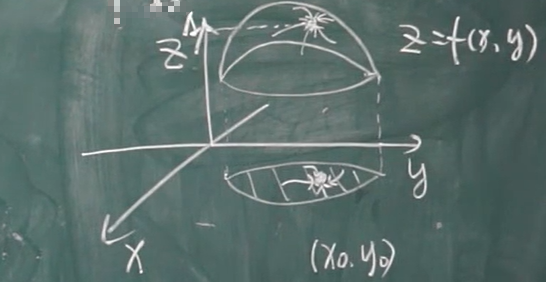 A
Z
z=f(x,y)
y
x
(x₀,y₀)